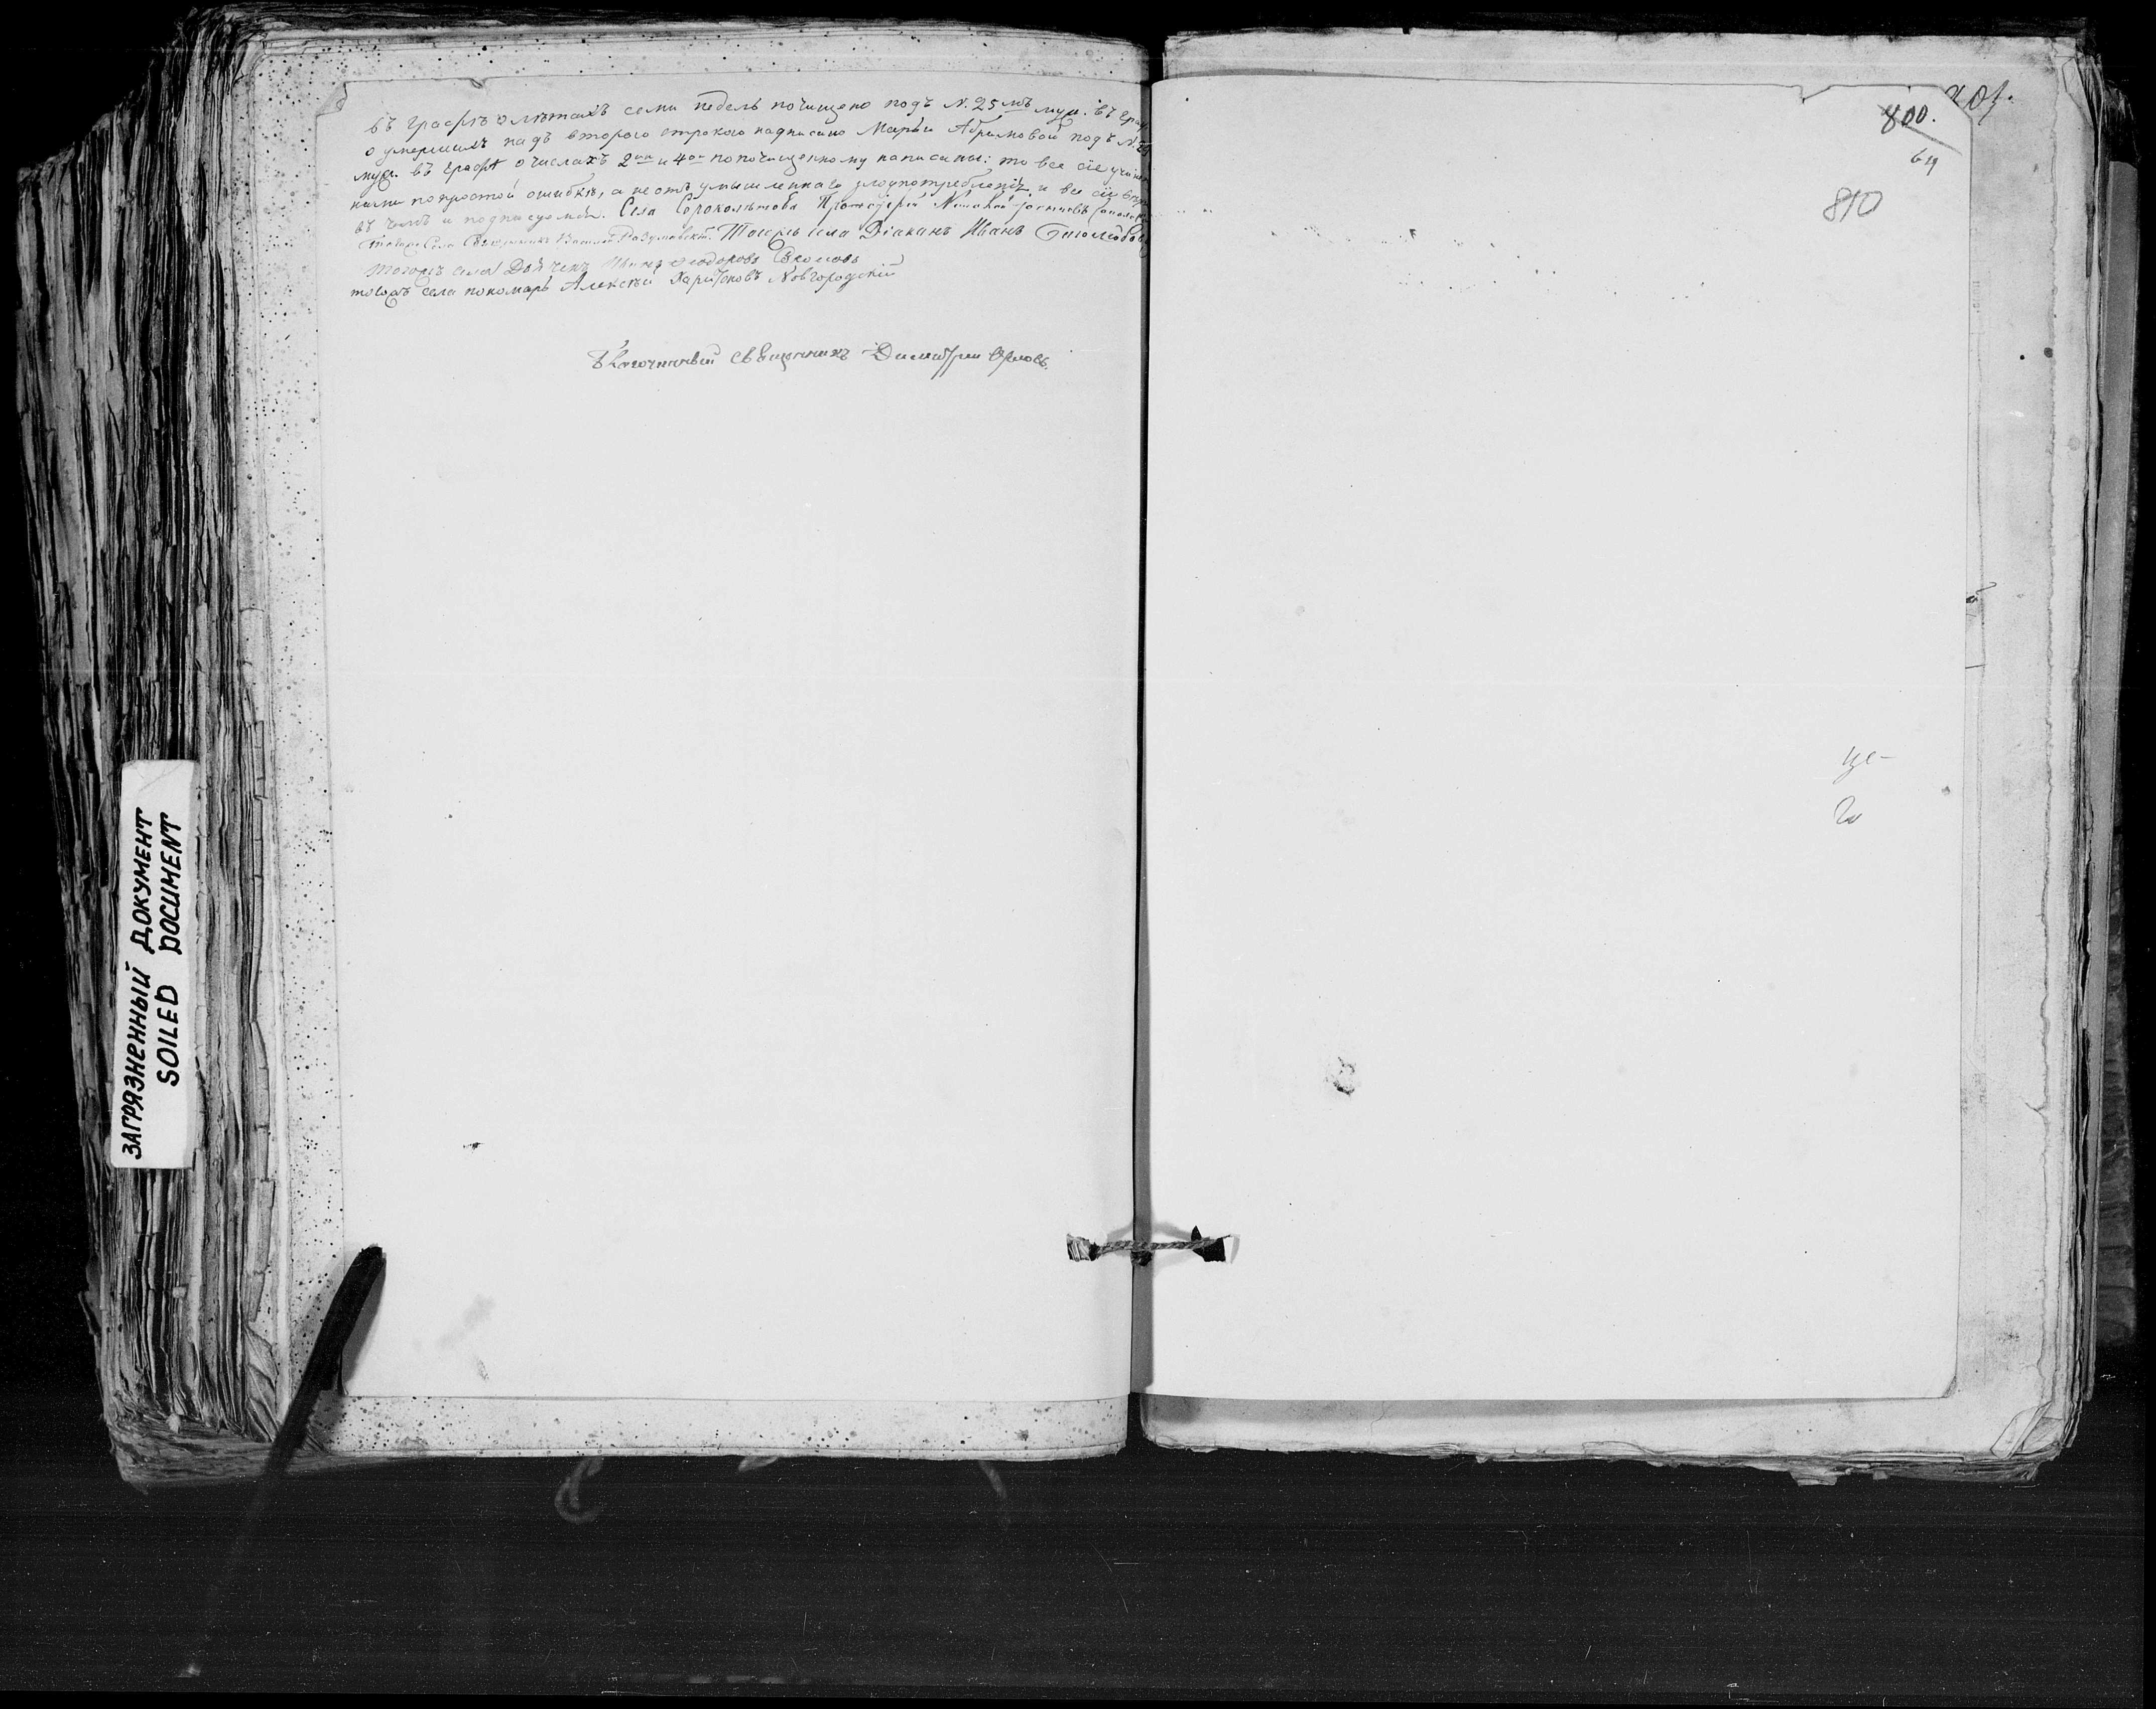 въ графѣ о лѣтахъ семи недель почищено подъ N. 25мъ муж. въ
о умершихъ надъ второю строкою надписано Марьи Абрамовой подъ N.
муж. въ графѣ о числахъ 2ое и 4ое по почищенному написаны: то все сіе
нами по простой ошибкѣ, а не отъ умышленнаго злоупотребленія, и все сіе
въ чемъ и подписуемся. Села Сороколѣтова Протоіерей
Тогоже Села Священникъ Василій Тогожъ села Діаконъ Иванъ
Тогожъ села Дьячекъ Иванъ Ѳеодоровъ
тогожъ села пономарь Алексѣй Харитоновъ Новгородскій
Благочинный священникъ Димитрий Орловъ.
800.
619
810
ЗАГРЯЗНЕННЫЙ ДОКУМЕНТ
SOILED DOCUMENT